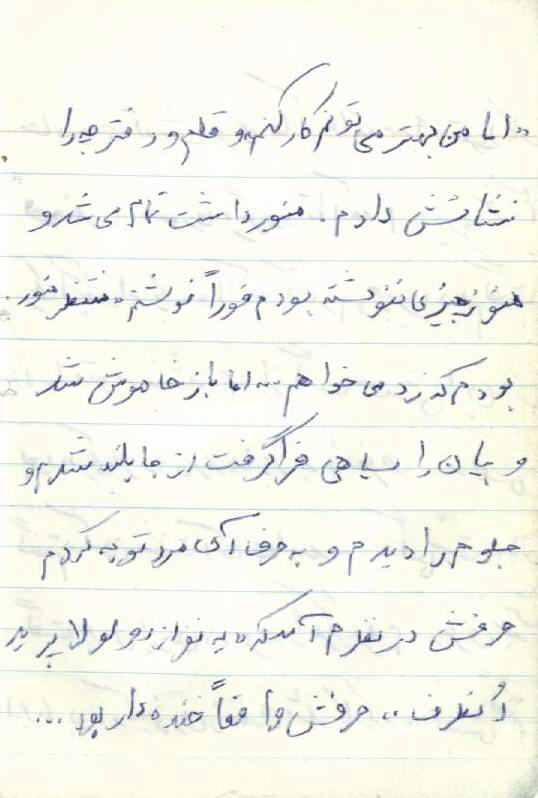 «اما من بهتر می تونم کار کنم» و قلم و دفترچه را
نشانش دادم. منور داشت تمام می شد و
هنوز چیزی ننوشته بودم فوراً نوشتم «منتظر منور
بودم که زد می خواهم ... اما باز خاموش شد
و بیابان را سیاهی فرا گرفت از جا بلند شدم و
جلوم را دیدم و به حرف آن مرد توجه کردم
حرفش در نظرم آمد که «یه نوار دو لولا بپر
اُنطرف»، حرفش واقعاً خنده دار بود ...